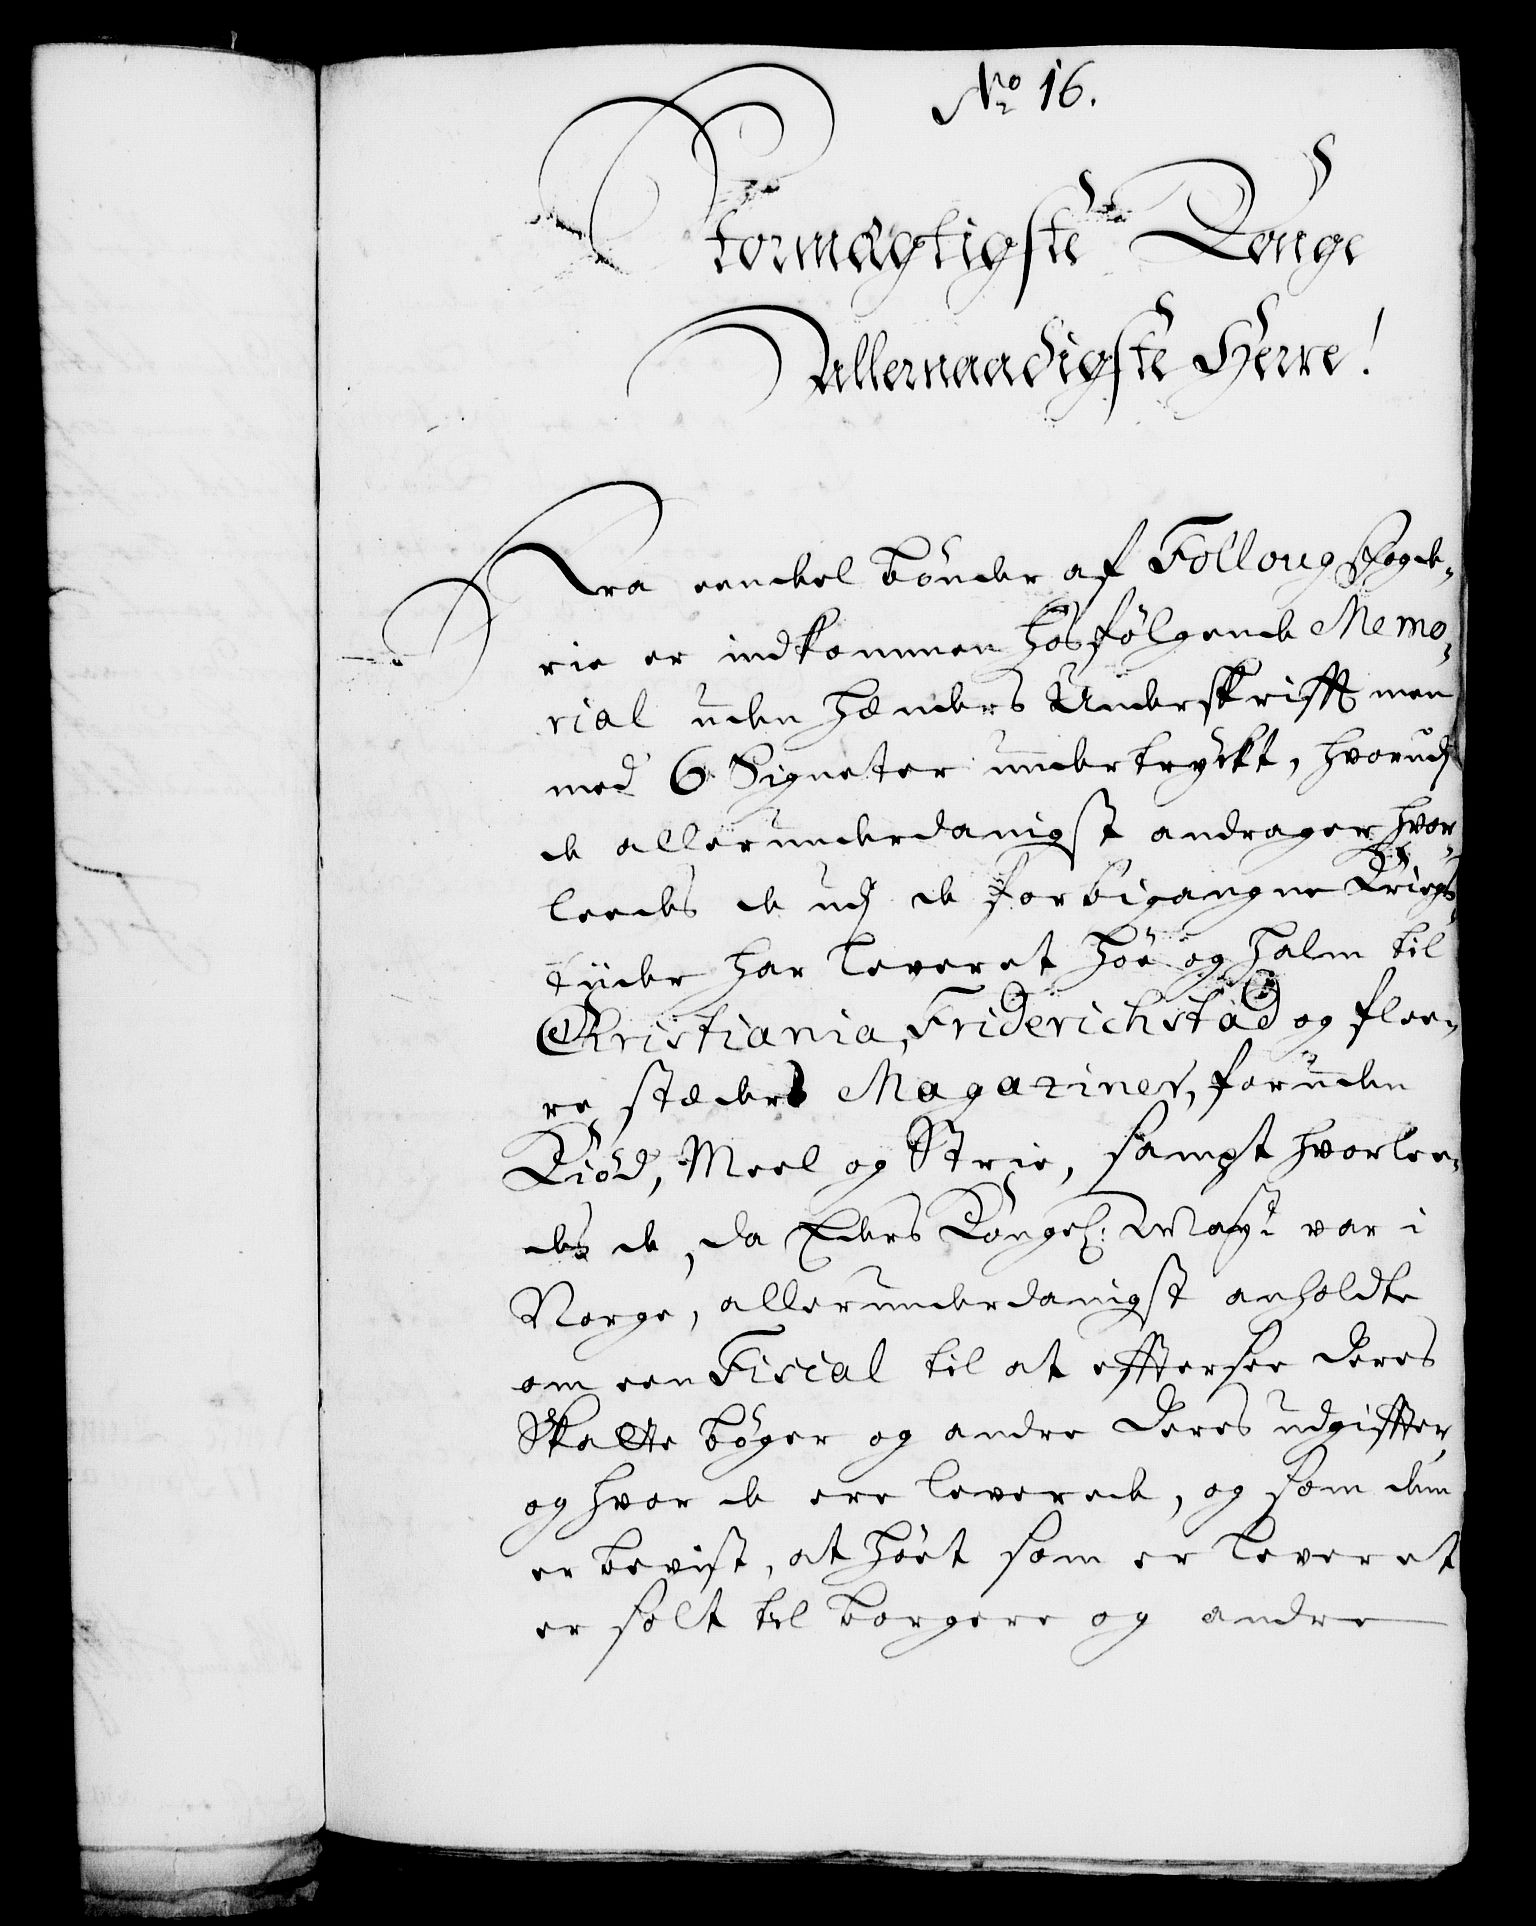 No 16.
Stormægtigste Konge
Allernaadigste Herre!
Fra eendel bönder af Folloug fogde-
rie er indkommen hosfölgende Memo-
rial uden hænders Underskrifft men
med 6 Signeter undertryckt, hvorudj
de allerunderdanigst andrager hvor-
leedes de udj de forbigangne Kriegs
tiider har leveret höe og halm til
Christiania, Friderichstad og flee-
re stæders Magaziner, foruden
Kiöd, Meel og Strie, sampt hvorlee-
des de, da Eders Kongel: Mayt var i
Norge, allerunderdanigst anholdte
om een Fiscal til at effttersee deres
Skatte böger og andre deres udgiffter,
og hvor de ere leverede, og som dem
er bevist, at höet som er leveret
er solt til borgere og andre